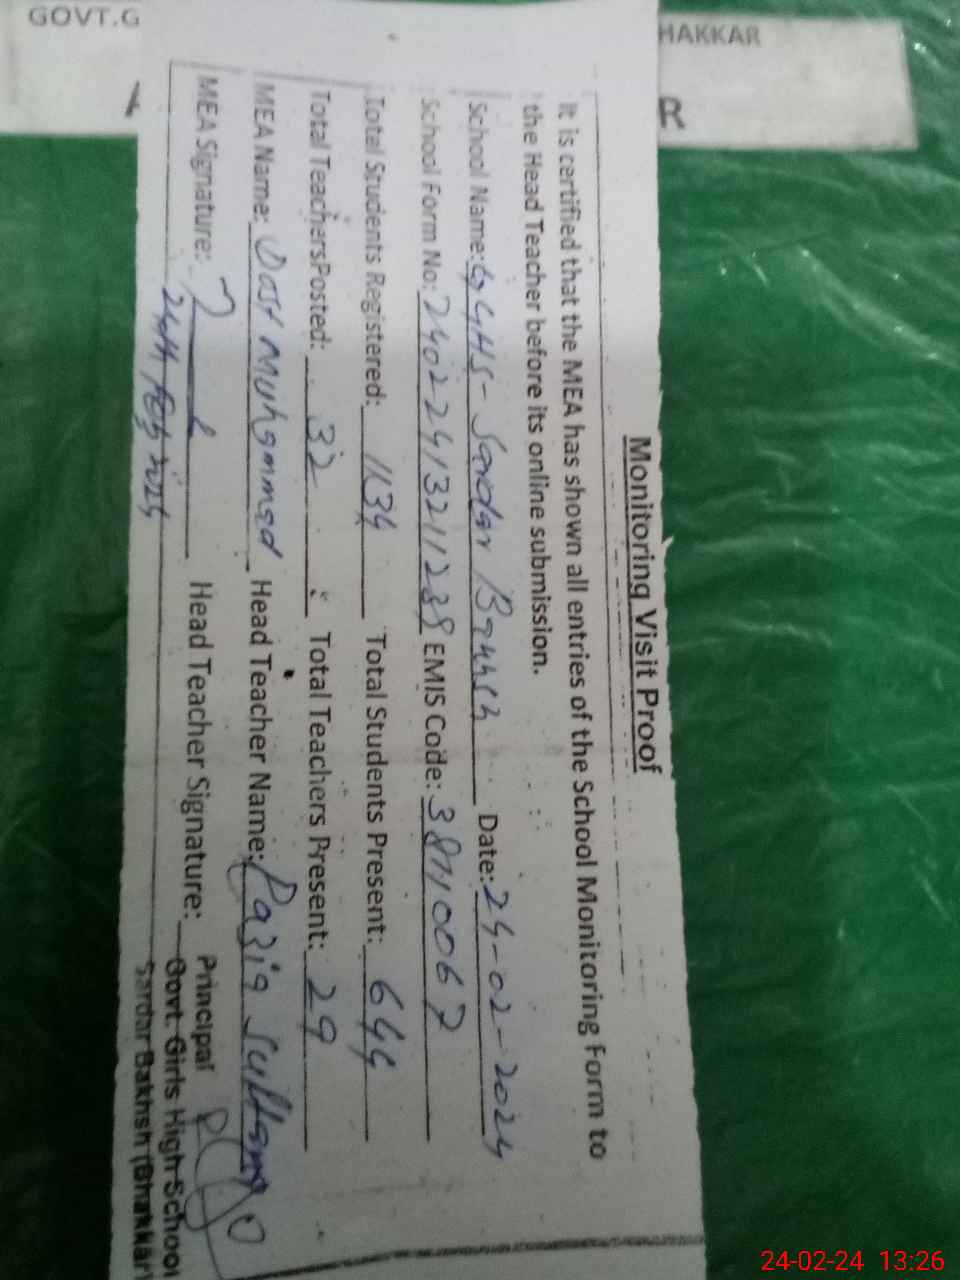 GOVT.G
HAKKAR
R
Monitoring Visit Proof
It is certified that the MEA has shown all entries of the School Monitoring Form to
the Head Teacher before its online submission.
School Name: GGHS - Sardar Bakhsh Date: 24-02-2024
School Form No: 2402241321128 EMIS Code: 38110067
Total Students Registered: 1134 Total Students Present: 644
Total Teachers Posted: 32 Total Teachers Present: 29
MEA Name: Dost Muhammad Head Teacher Name: Razia Sultana
MEA Signature: Head Teacher Signature:
24th Feb, 2024
Principal
Govt. Girls High School
Sardar Bakhsh (Bhakkar)
24-02-24 13:26